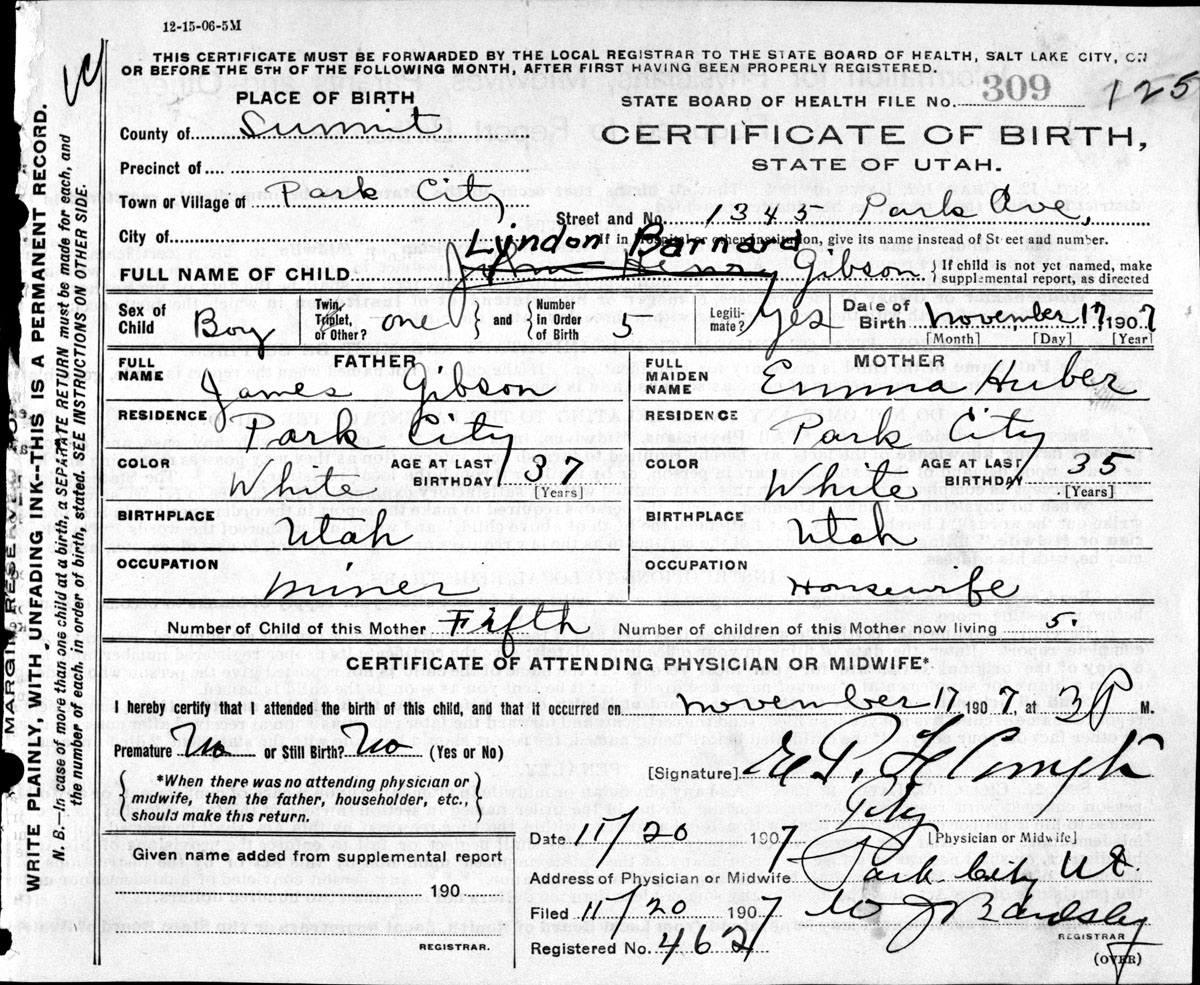 12-15-06-5M
THIS CERTIFICATE MUST BE FORWARDED BY THE LOCAL REGISTRAR TO THE STATE BOARD OF HEALTH, SALT LAKE CITY, ON
OR BEFORE THE 5TH OF THE FOLLOWING MONTH, AFTER FIRST HAVING BEEN PROPERLY REGISTERED.
PLACE OF BIRTH
County of Summit
Precinct of
Town or Village of Park City
City of
STATE BOARD OF HEALTH FILE No. 309 125
CERTIFICATE OF BIRTH,
STATE OF UTAH.
Street and No. 1345 Park Ave,
If in Hospital or other Institution, give its name instead of Street and number.
Lyndon Barnard
FULL NAME OF CHILD John Henry Gibson
If child is not yet named, make
supplemental report, as directed
Sex of Child Boy Twin, Triplet, or Other? one and Number in Order of Birth 5 Legitimate? Yes Date of Birth November 17 1907
[Month] [Day] [Year]
FATHER
FULL NAME James Gibson
RESIDENCE Park City
COLOR White AGE AT LAST BIRTHDAY 37 [Years]
BIRTHPLACE Utah
OCCUPATION Miner
MOTHER
FULL MAIDEN NAME Emma Huber
RESIDENCE Park City
COLOR White AGE AT LAST BIRTHDAY 35 [Years]
BIRTHPLACE Utah
OCCUPATION Housewife
Number of Child of this Mother Fifth Number of children of this Mother now living 5.
CERTIFICATE OF ATTENDING PHYSICIAN OR MIDWIFE*
I hereby certify that I attended the birth of this child, and that it occurred on November 17 1907, at 3 P M.
Premature No or Still Birth? No (Yes or No)
*When there was no attending physician or
midwife, then the father, householder, etc.,
should make this return.
Given name added from supplemental report
190
REGISTRAR.
[Signature]
[Physician or Midwife]
Date 11/20 1907
Address of Physician or Midwife Park City Ut.
Filed 11/20 1907 Bardsley
REGISTRAR
Registered No. 462
(OVER)
MARGIN RESERVED FOR
WRITE PLAINLY, WITH UNFADING INK--THIS IS A PERMANENT RECORD.
N. B.—In case of more than one child at a birth, a SEPARATE RETURN must be made for each, and
the number of each, in order of birth, stated. SEE INSTRUCTIONS ON OTHER SIDE.